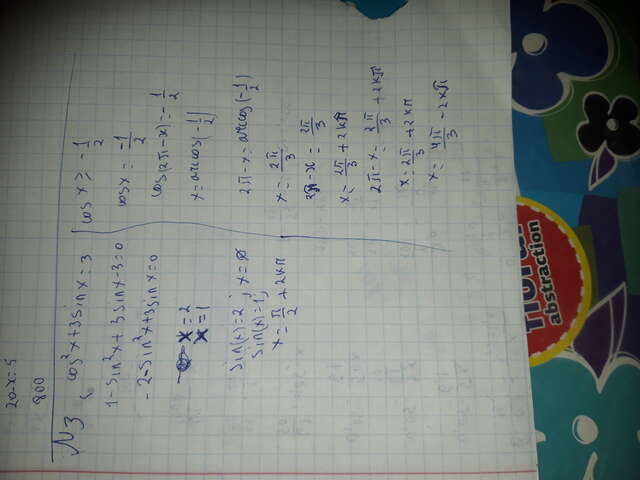 20-x=5
800
N3
cos²x+3sinx=3
1-sin²x+3sinx-3=0
-2-sin²x+3sinx=0
x=2
x=1
sin(x)=2; x=∅
sin(x)=1;
x=π/2+2kπ
cosx≥-1/2
cosx=-1/2
cos(2π-x)=-1/2
x=arccos(-1/2)
2π-x=arccos(-1/2)
x=2π/3
2π-x=2π/3
x=2π/3+2kπ
2π-x=2π/3+2kπ
x=2π/3+2kπ
x=4π/3-2kπ
floral
abstraction